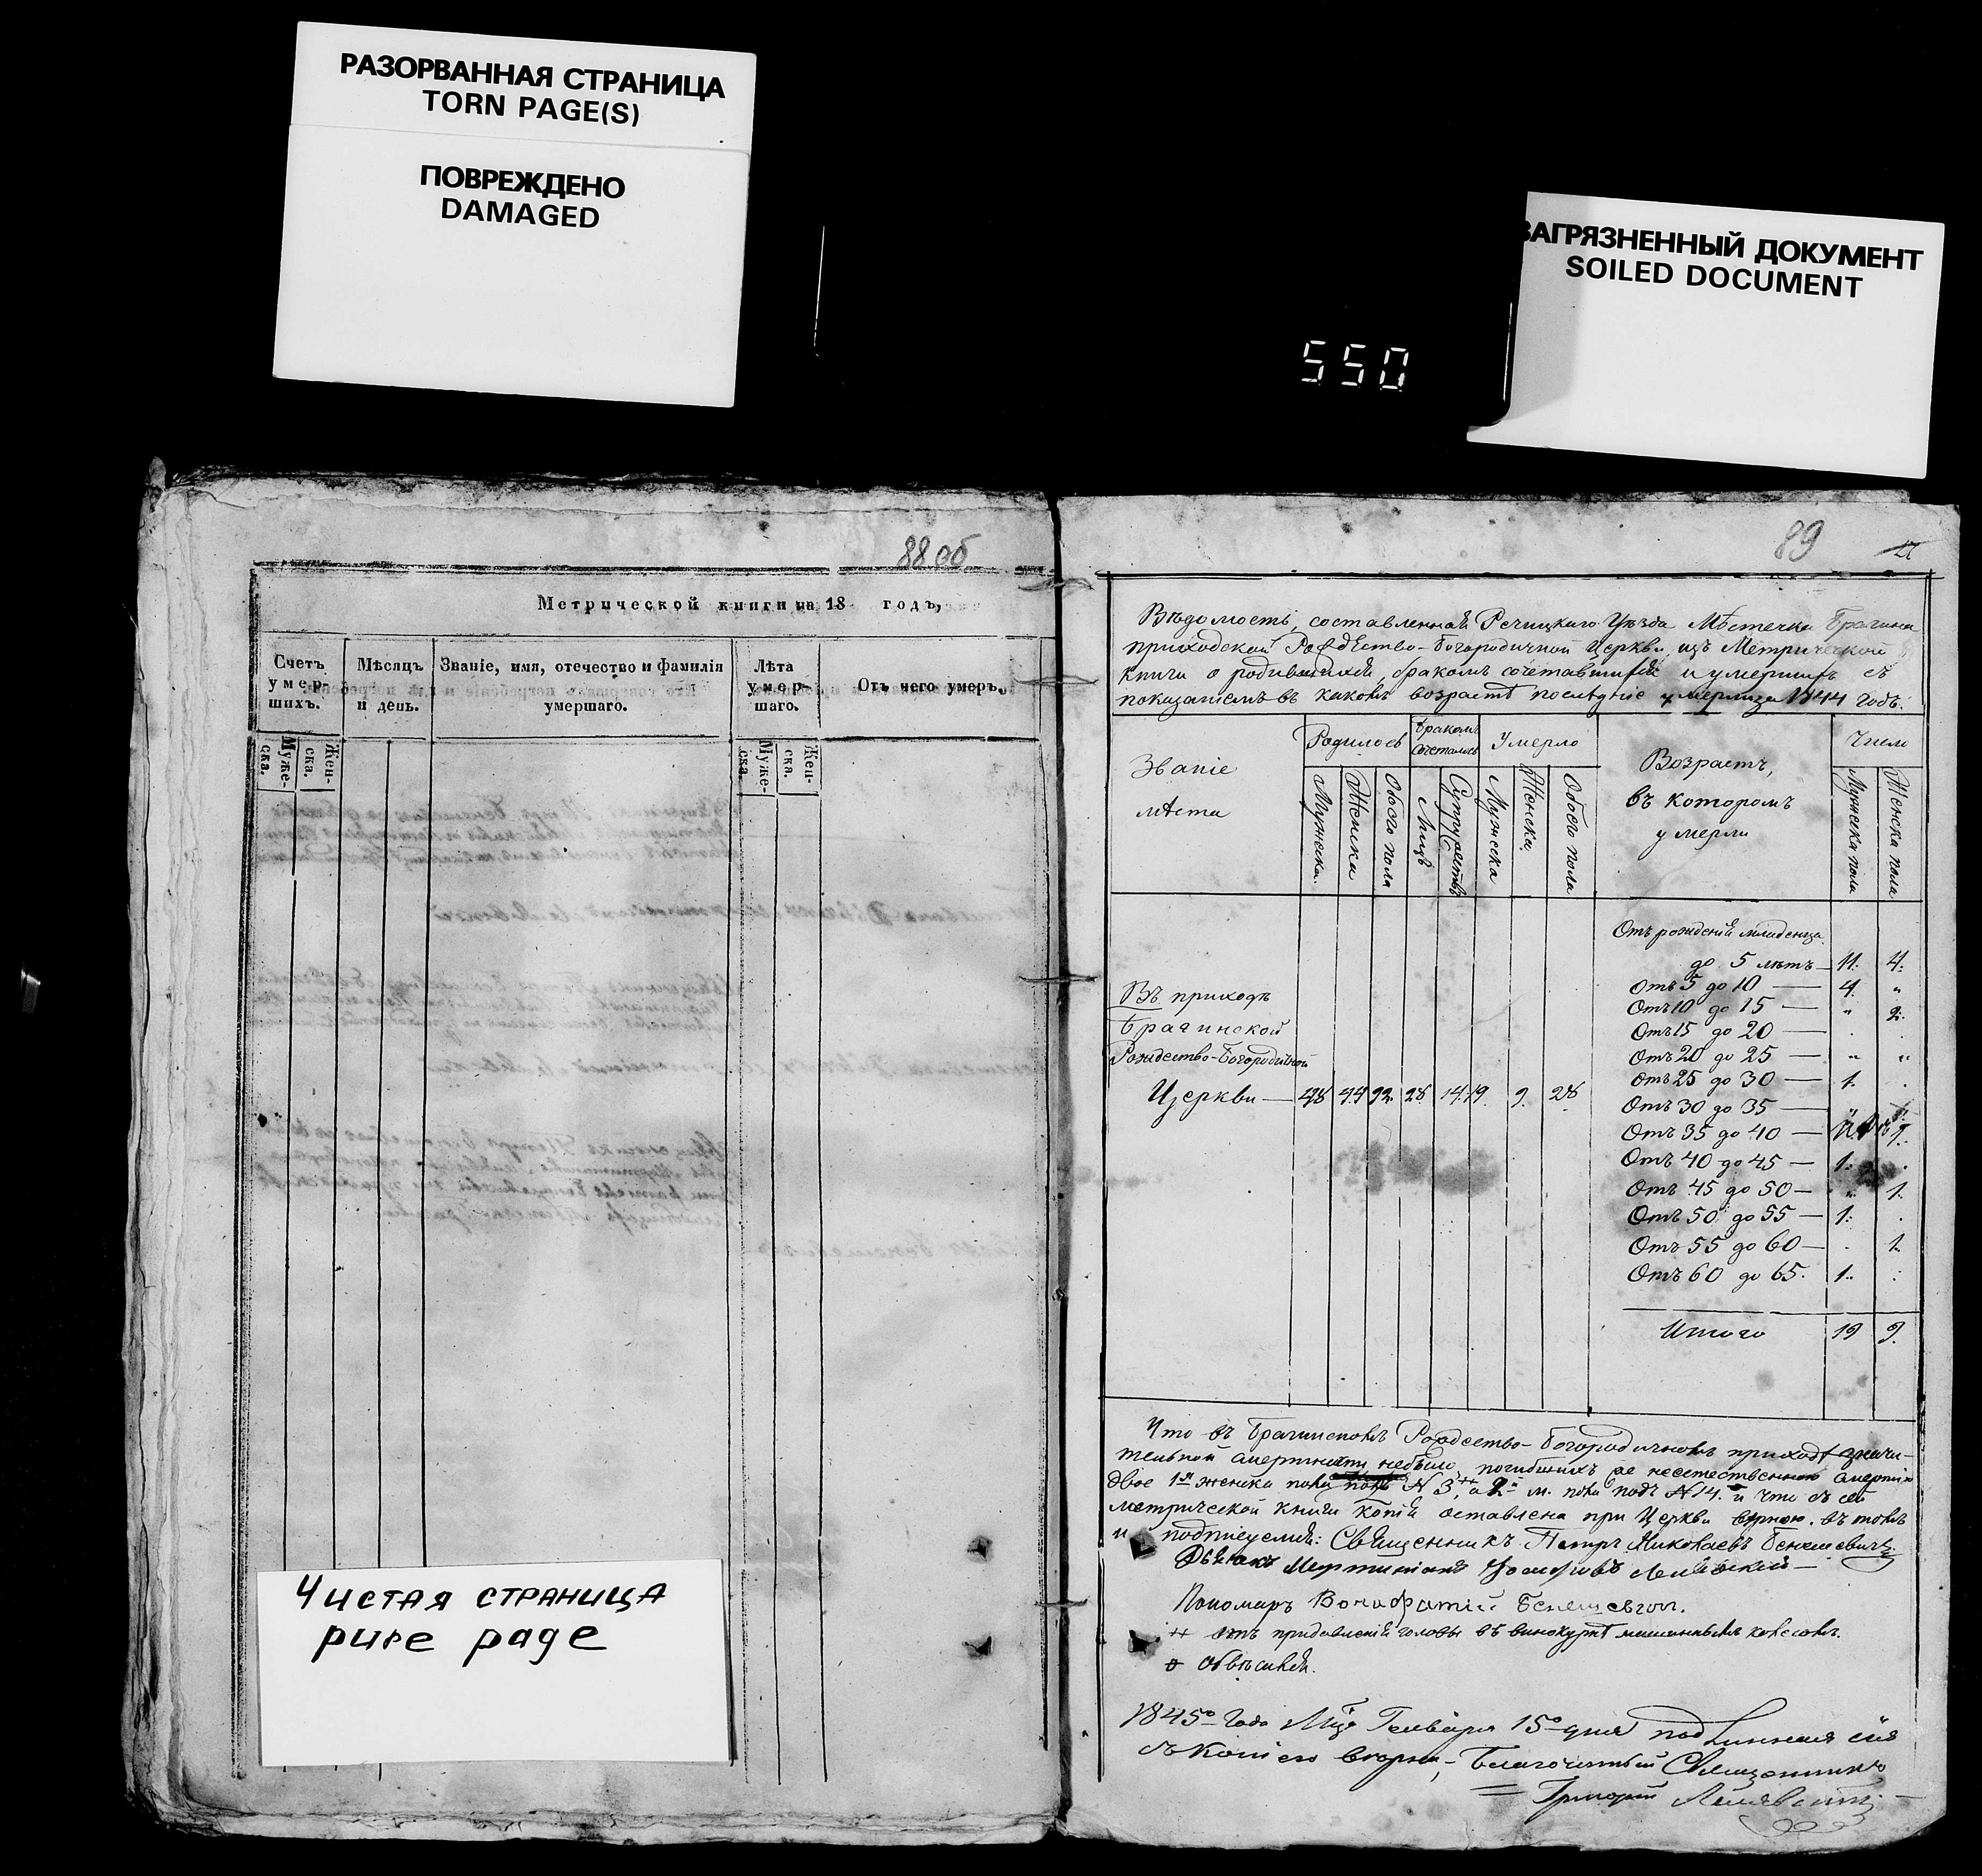 РАЗОРВАННАЯ СТРАНИЦА
TORN PAGE(S)
ПОВРЕЖДЕНО
DAMAGED
ЗАГРЯЗНЕННЫЙ ДОКУМЕНТ
SOILED DOCUMENT
550
88 об
Метрической книги на 18 годъ,
Счетъ умер-шихъ.
Мѣсяцъ и день.
Званіе, имя, отечество и фамилія умершаго.
Лѣта умер-шаго.
Отъ чего умеръ.
Муже-ска.
Жен-ска.
Муже-ска.
Жен-ска.
Чистая страница
pure page
89
27
Вѣдомость, составленная Речицкаго Уѣзда Мѣстечка Брагина
приходской Рождество-Богородичной Церкви, изъ Метрической
книги о родившихся, бракомъ сочетавшихся и умершихъ съ
показаніемъ въ какомъ возрастѣ послѣдніе умерли за 1844 годъ.
Званіе мѣста
Родилось
Бракомъ сочеталось
Умерло
Возрастъ, въ которомъ умерли
Число
Мужеска
Женска
Обоего пола
Лицъ
Супружествъ
Мужеска
Женска
Обоего пола
Мужеска пола
Женска пола
Отъ рожденія младенца
до 5 лѣтъ — 11. 4.
Отъ 5 до 10 — 4. "
Отъ 10 до 15 — " 2.
Отъ 15 до 20 — . .
Отъ 20 до 25 — " "
Отъ 25 до 30 — 1. .
Отъ 30 до 35 —
Отъ 35 до 40 —
Отъ 40 до 45 — 1. .
Отъ 45 до 50 — " 1.
Отъ 50 до 55 — 1. .
Отъ 55 до 60 — . 1.
Отъ 60 до 65. 1. .
Итого 19 9.
Въ приходѣ
Брагинской
Рождество-Богородичной
Церкви — 48 44 92. 28. 14. 19. 9. 28
Что въ Брагинскомъ Рождество-Богородичномъ приходѣ значи-
тельной смертности небыло, погибшихъ не несетественною смертію
двое 1я женска пола N 3, а 2й м. пола подъ N 14. и что съ сей
метрической книги копія оставлена при Церкви вѣрною. въ томъ
и подписуемся: Священникъ Петръ Николаевъ Бенешевичъ.
Дьячокъ
Пономаръ Бенешевич.
отъ придавленія головы въ винокурнѣ колесомъ.
обвѣсился.
1845го Года Мца Генваря 15го дня подлинная сія
съ копіею вѣрна, Благочинный Священникъ
Григорій